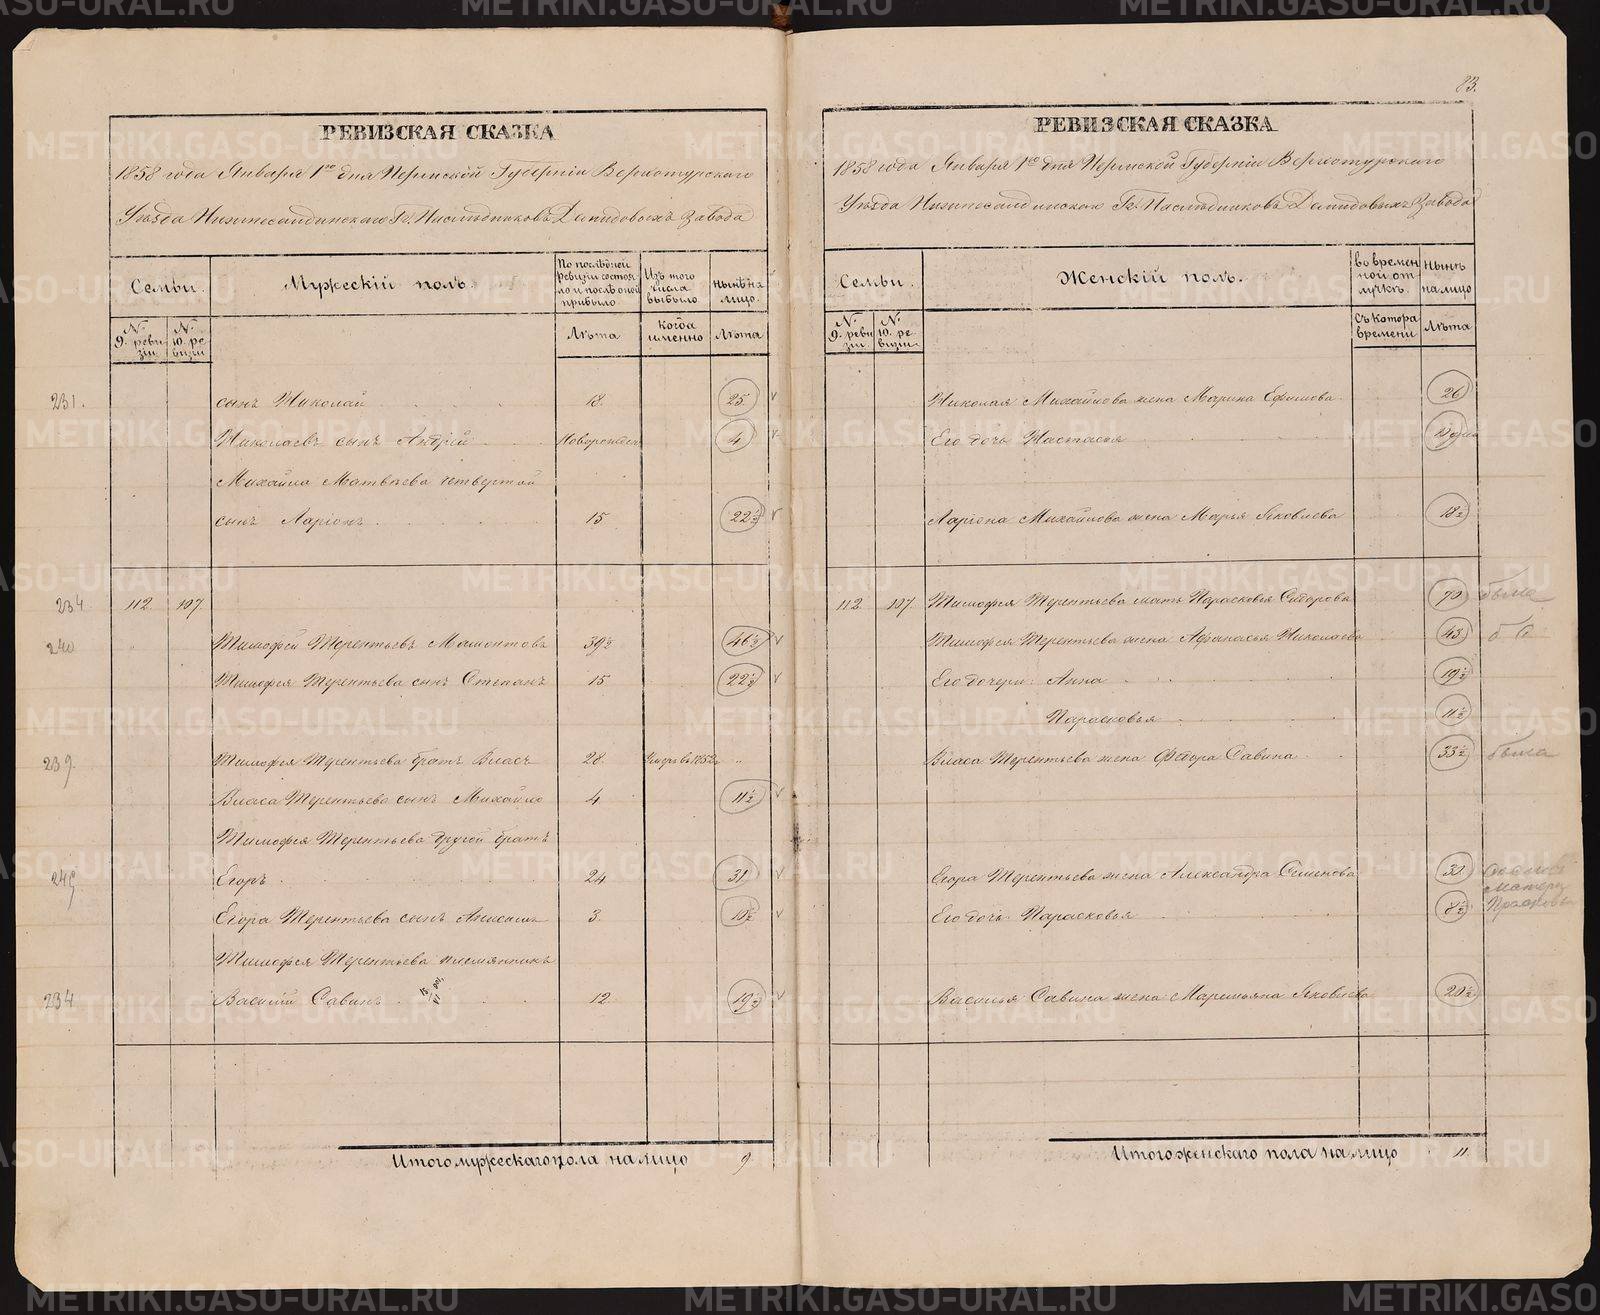 83.
РЕВИЗСКАЯ СКАЗКА
1858 года Января 1го дня Пермской Губерніи Верхотурскаго
Уѣзда Нижнесалдинскаго Гг. Наслѣдниковъ Демидовыхъ Завода
Семьи.
Мужескій полъ.
По послѣдней ревизіи состояло и послѣ оной прибыло
Изъ того числа выбыло
Нынѣ на лицо.
№ 9. ревизіи
№ 10. ревизіи
Лѣта
Когда именно
Лѣта
231. сынъ Николай 18. 25
Николаевъ сынъ Андрей Новорожден 4
Михайла Матвѣева четвертой
сынъ Ларіонъ 15 22½
234. 112. 107.
240 Тимофей Терентьевъ Мамонтовъ 39½ 46½
Тимофея Терентьева сынъ Степанъ 15 22½
239. Тимофея Терентьева братъ Власъ 28. Умеръ въ 1852
Власа Терентьева сынъ Михайло 4 11½
Тимофея Терентьева другой братъ
Егоръ 24 31
Егора Терентьева сынъ Анисимъ 3. 10½
Тимофея Терентьева племянникъ
234 Василій Савинъ 12. 19½
Итого мужескаго пола на лицо 9.
РЕВИЗСКАЯ СКАЗКА
1858 года Января 1го дня Пермской Губерніи Верхотурскаго
Уѣзда Нижнесалдинскаго Гг. Наслѣдниковъ Демидовыхъ Завода
Семьи.
Женскій полъ.
во временной отлучкѣ.
Нынѣ на лицо
№ 9. ревизіи
№ 10. ревизіи
Съ котора времени
Лѣта
Николая Михайлова жена Марина Ефимова 26
Его дочь Настасья
Ларіона Михайлова жена Марья Яковлева 18½
112. 107. Тимофея Терентьева мать Парасковья Сидорова 70 была
Тимофея Терентьева жена Афанасья Николаева 43
Его дочери: Анна 19½
Парасковья 11½
Власа Терентьева жена Федора Савина 33½ была
Егора Терентьева жена Александра Семенова 31
Его дочь Парасковья 8½
Василья Савина жена Маремьяна Яковлева 20½
Итого женскаго пола на лицо 11.
METRIKI.GASO-URAL.RU